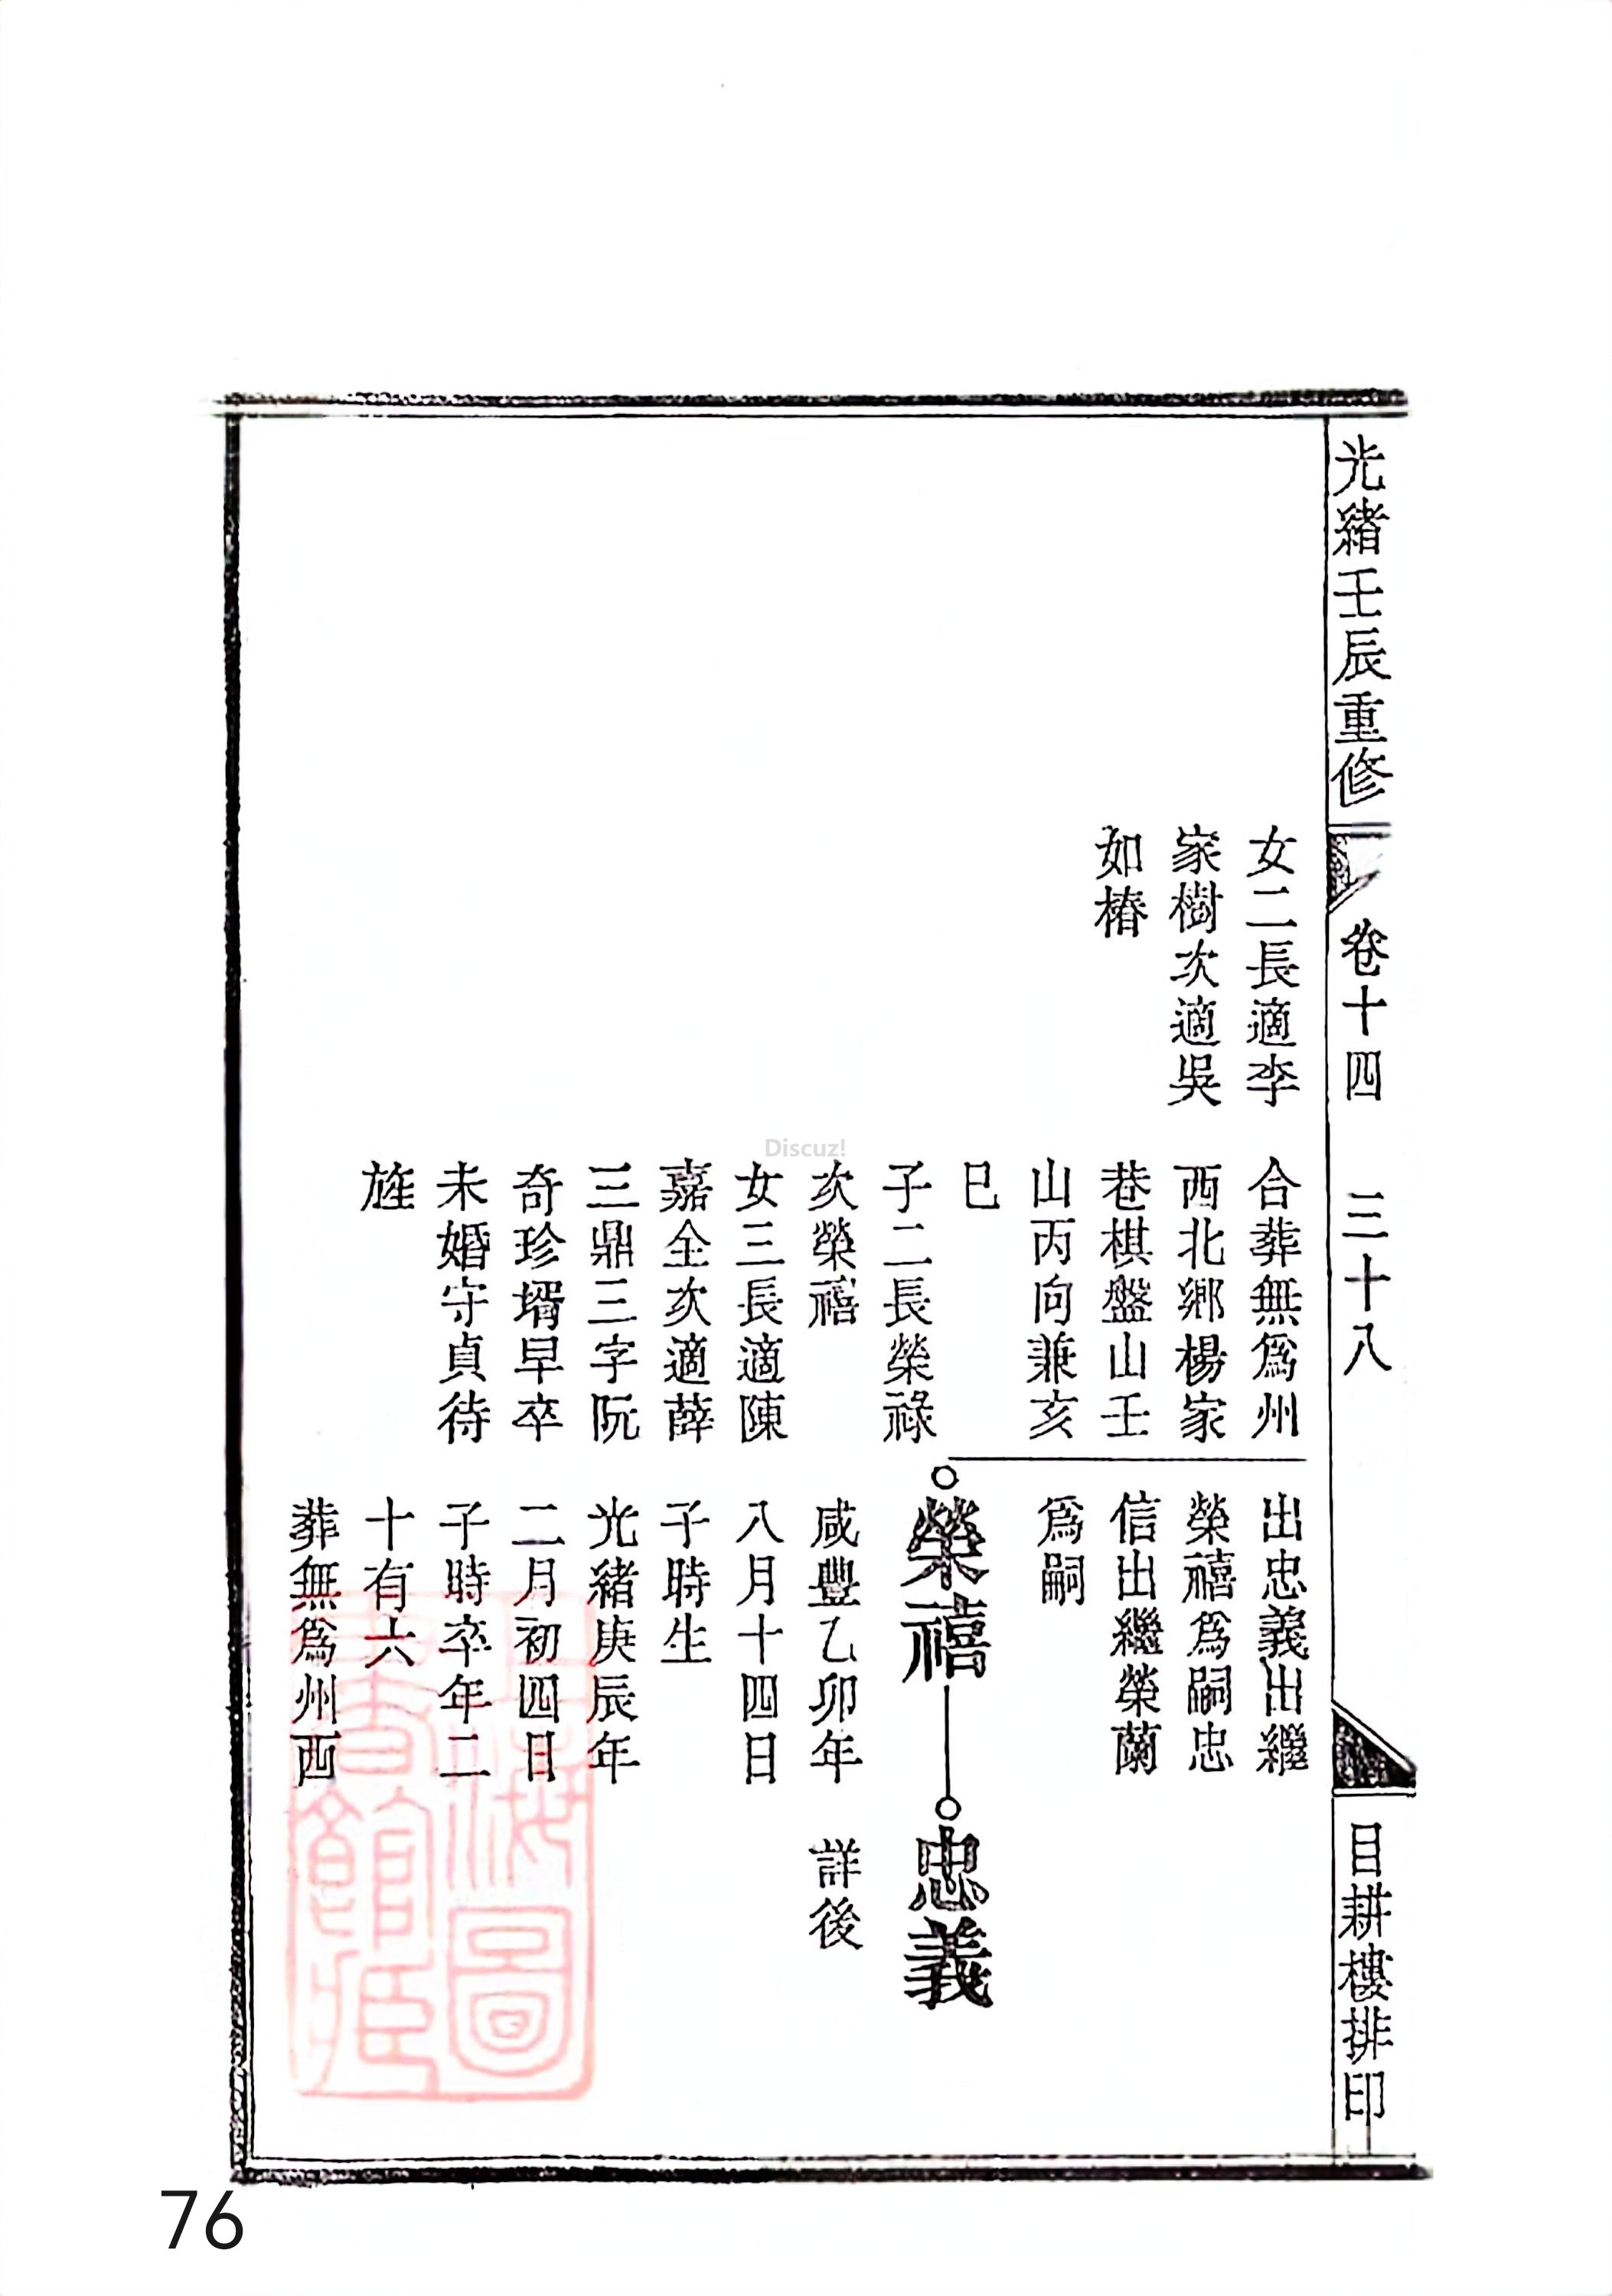 光緒壬辰重修
卷十四
三十八
目耕樓排印
女二長適李
家樹次適吳
如椿
合葬無爲州
西北鄉楊家
巷棋盤山壬
山丙向兼亥
巳
子二長榮祿
次榮禧
女三長適陳
嘉全次適薛
三鼎三字阮
奇珍壻早卒
未婚守貞待
旌
出忠義出繼
榮禧爲嗣忠
信出繼榮蘭
爲嗣
榮禧
咸豐乙卯年
八月十四日
子時生
光緒庚辰年
二月初四日
子時卒年二
十有六
葬無爲州西
忠義
詳後
上海圖
書館藏
Discuz!
76